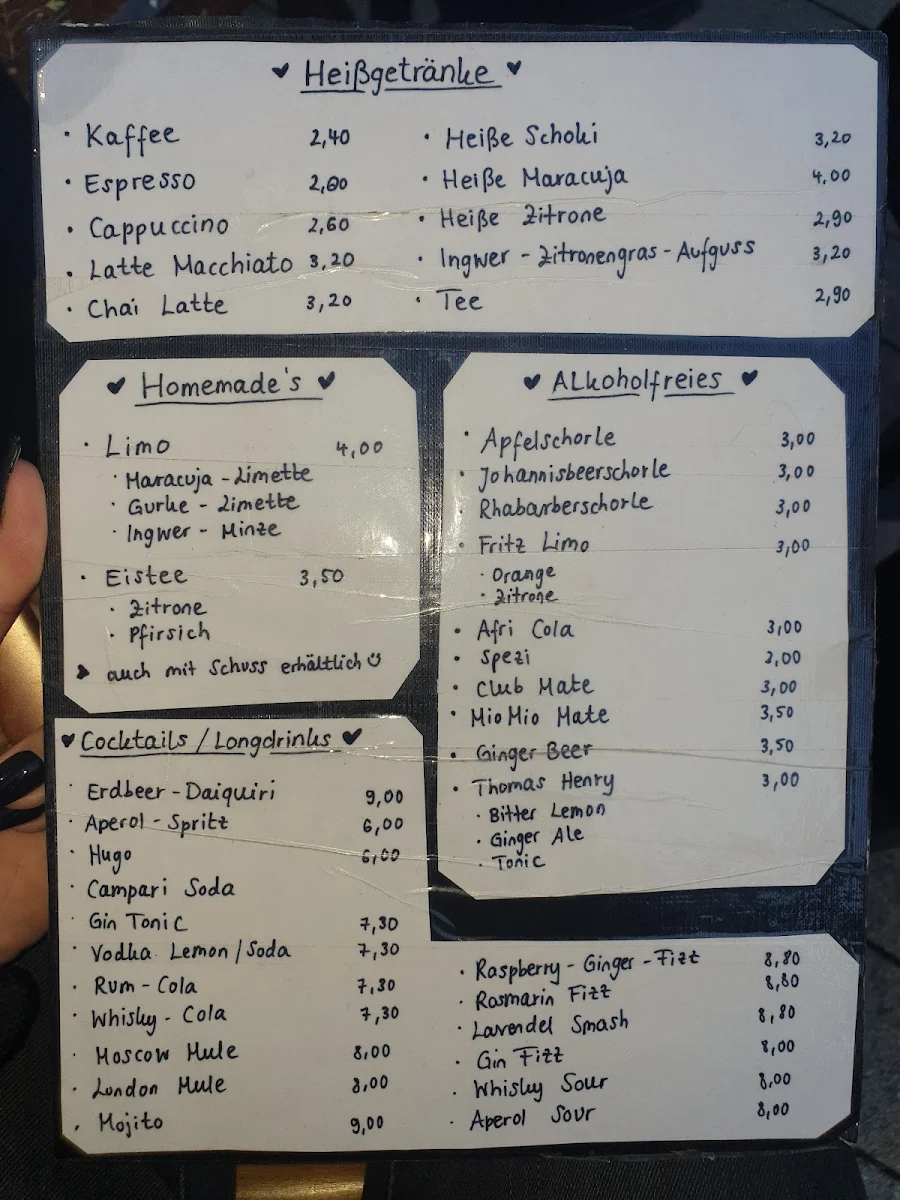 ♥ Heißgetränke ♥
· Kaffee 2,40
· Espresso 2,00
· Cappuccino 2,60
· Latte Macchiato 3,20
· Chai Latte 3,20
· Heiße Schoki 3,20
· Heiße Maracuja 4,00
· Heiße Zitrone 2,90
· Ingwer - Zitronengras - Aufguss 3,20
· Tee 2,90
♥ Homemade's ♥
· Limo 4,00
· Maracuja - Limette
· Gurke - Limette
· Ingwer - Minze
· Eistee 3,50
· Zitrone
· Pfirsich
auch mit Schuss erhältlich ☺
♥ Alkoholfreies ♥
· Apfelschorle 3,00
· Johannisbeerschorle 3,00
· Rhabarberschorle 3,00
· Fritz Limo 3,00
· Orange
· Zitrone
· Afri Cola 3,00
· Spezi 2,00
· Club Mate 3,00
· MioMio Mate 3,50
· Ginger Beer 3,50
· Thomas Henry 3,00
· Bitter Lemon
· Ginger Ale
· Tonic
♥ Cocktails / Longdrinks ♥
· Erdbeer - Daiquiri 9,00
· Aperol - Spritz 6,00
· Hugo 6,00
· Campari Soda
· Gin Tonic 7,30
· Vodka Lemon / Soda 7,30
· Rum - Cola 7,30
· Whisky - Cola 7,30
· Moscow Mule 8,00
· London Mule 8,00
· Mojito 9,00
· Raspberry - Ginger - Fizz 8,80
· Rosmarin Fizz 8,80
· Lavendel Smash 8,80
· Gin Fizz 8,00
· Whisky Sour 8,00
· Aperol Sour 8,00